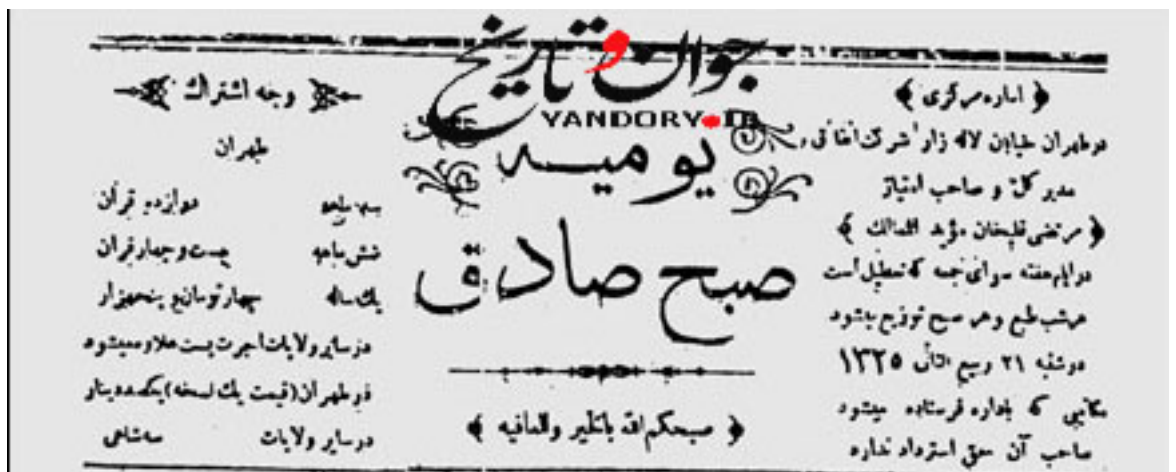 جوان و تاریخ
YANDORY.IR
﴿ اداره مرکزی ﴾
در طهران خیابان لاله زار شرکت اتفاقی
مدیر کل و صاحب امتیاز
﴿ مرتضی قلیخان مؤید الممالک ﴾
در ایام هفته سوای جمعه که تعطیل است
هر شب طبع و هر صبح توزیع میشود
دوشنبه ۲۱ ربیع الثانی ۱۳۲۵
مکاتیبی که باداره فرستاده میشود
صاحب آن حق استرداد ندارد
یومیه
صبح صادق
﴿ صبحکم الله بالخیر والعافیه ﴾
وجه اشتراک
طهران
سه ماهه دوازده قران
شش ماهه بیست و چهار قران
یک ساله چهار تومان و پنجهزار
در سایر ولایات اجرت پست علاوه میشود
در طهران (قیمت یک نسخه) یکصد دینار
در سایر ولایات سه شاهی